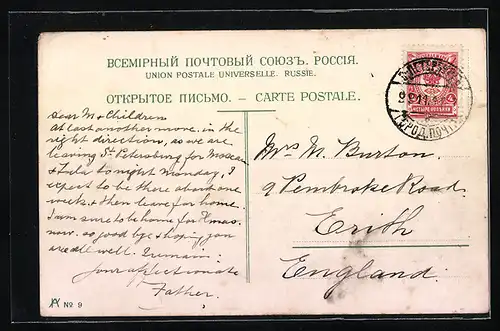 ВСЕМІРНЫЙ ПОЧТОВЫЙ СОЮЗЪ. РОССІЯ.
UNION POSTALE UNIVERSELLE. RUSSIE.
ОТКРЫТОЕ ПИСЬМО. – CARTE POSTALE.
Dear M. & Children
At last another move, in the
right direction, as we are
leaving St Petersburg for Moscow
& Tula tonight Monday, I
expect to be there about one
week & then leave for home.
I am sure to be home for Xmas
now. so good bye & hoping you
are all well. I remain:
your affectionate
Father.
Mrs M. Burton.
9 Pembroke Road.
Erith
England.
ГОРОД. ПОЧТ
№ 9